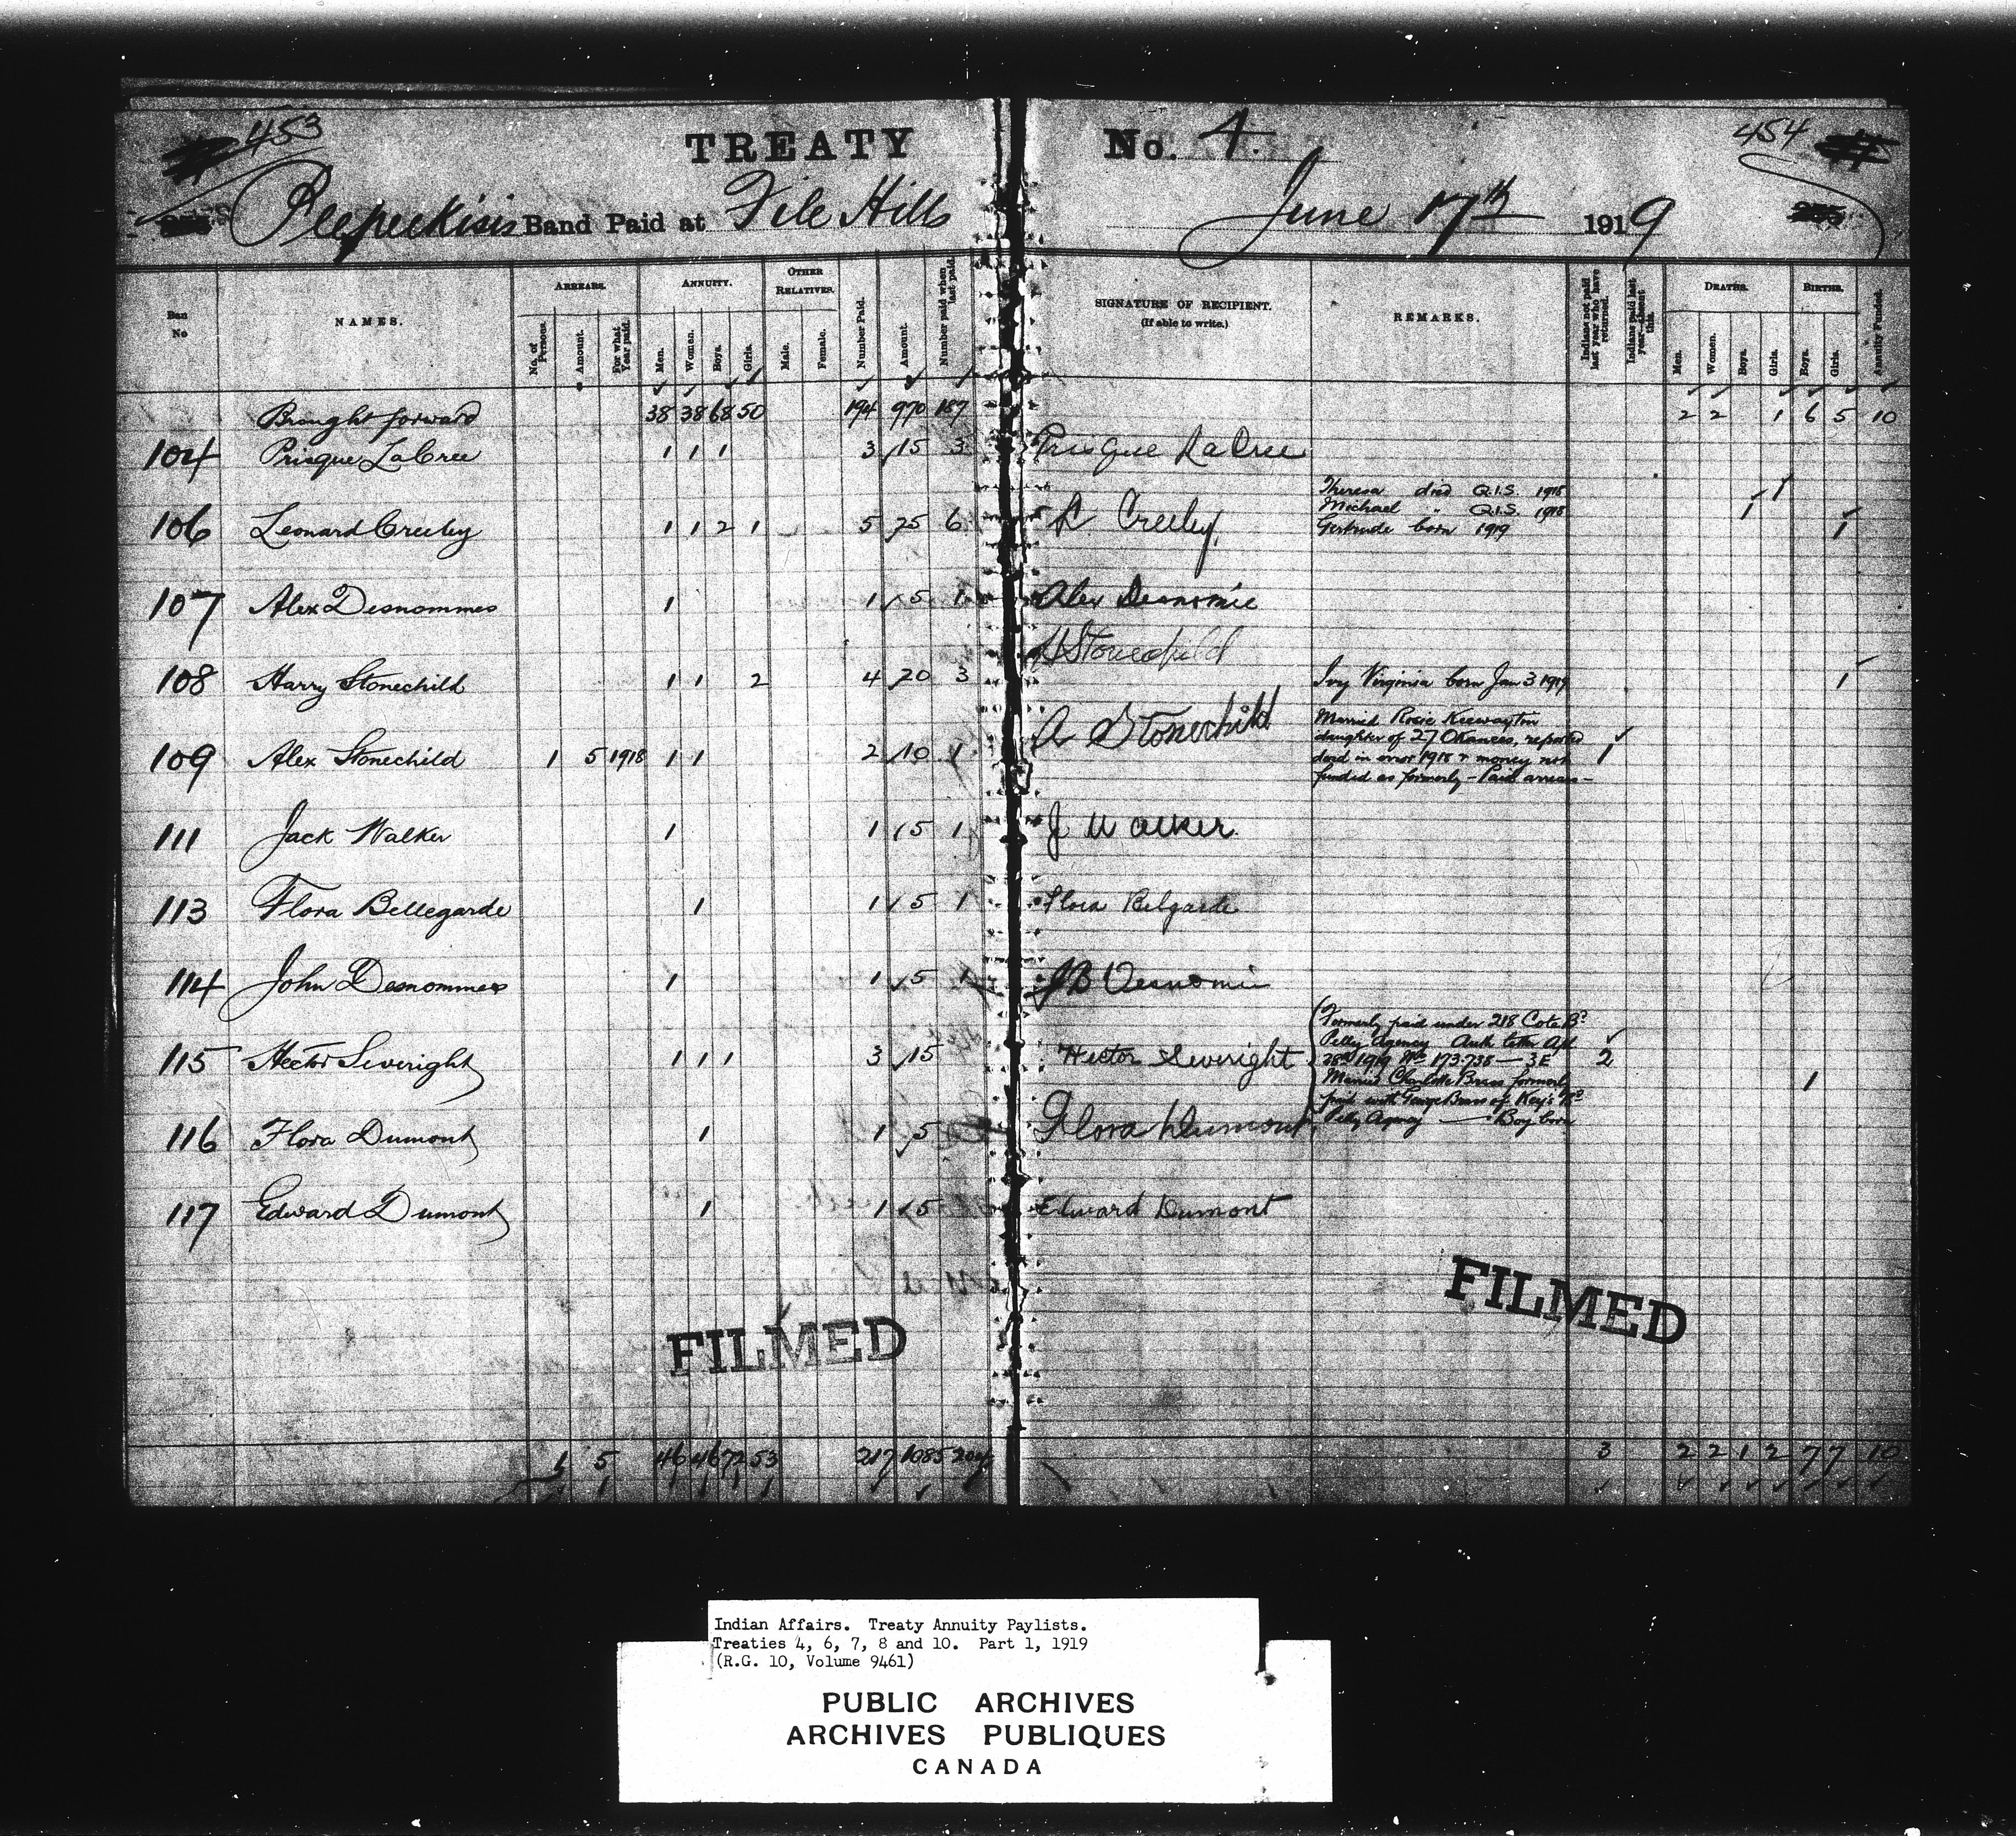 453
TREATY No. 4.
454
Peepeekisis Band Paid at File Hills June 17th 1919
Ban No
NAMES.
ARREARS.
No. of Persons.
Amount.
For what Year paid.
ANNUITY.
Men.
Women.
Boys.
Girls.
OTHER RELATIVES.
Male.
Female.
Number Paid.
Amount.
Number paid when last paid.
SIGNATURE OF RECIPIENT.
(If able to write.)
REMARKS.
Indians not paid last year who have returned.
Indians paid last year—absent this.
DEATHS.
Men.
Women.
Boys.
Girls.
BIRTHS.
Boys.
Girls.
Annuity Funded.
Brought forward 38 38 68 50 194 970 187 2 2 1 6 5 10
104 Prisque LaCree 1 1 1 3 15 3 Prisque LaCree
Theresa died Q.I.S. 1918 1
Michael " Q.I.S. 1918 1
106 Leonard Creeley 1 1 2 1 5 25 6 L Creeley. Gertrude born 1919 1
107 Alex Desnommes 1 1 5 1 Alex Desnomie
H Stonechild
108 Harry Stonechild 1 1 2 4 20 3 Ivy Virginia born Jan 3 1919 1
A Stonechild
Married Rosie Keewaytin
daughter of 27 Okanees, reported
109 Alex Stonechild 1 5 1918 1 1 2 10 1 dead in error 1918 & money not 1
funded as formerly - Paid arrears -
111 Jack Walker 1 1 5 1 J Walker
113 Flora Bellegarde 1 1 5 1 Flora Belgarde
114 John Desnommes 1 1 5 1 JB Desnomie
Formerly paid under 218 Cote Bd
Pelly Agency Auth letter Apl
115 Hector Severight 1 1 1 3 15 Hector Severight 28th 1919 No 173738 — 3E 2
Married Charlotte Brass formerly 1
paid with George Brass of Key's Bd
Pelly Agency — Boy born
116 Flora Dumont 1 1 5 Flora Dumont
117 Edward Dumont 1 1 5 Edward Dumont
FILMED
FILMED
1 5 46 46 72 53 217 1085 204 3 2 2 1 2 7 7 10
Indian Affairs. Treaty Annuity Paylists.
Treaties 4, 6, 7, 8 and 10. Part 1, 1919
(R.G. 10, Volume 9461)
PUBLIC ARCHIVES
ARCHIVES PUBLIQUES
CANADA